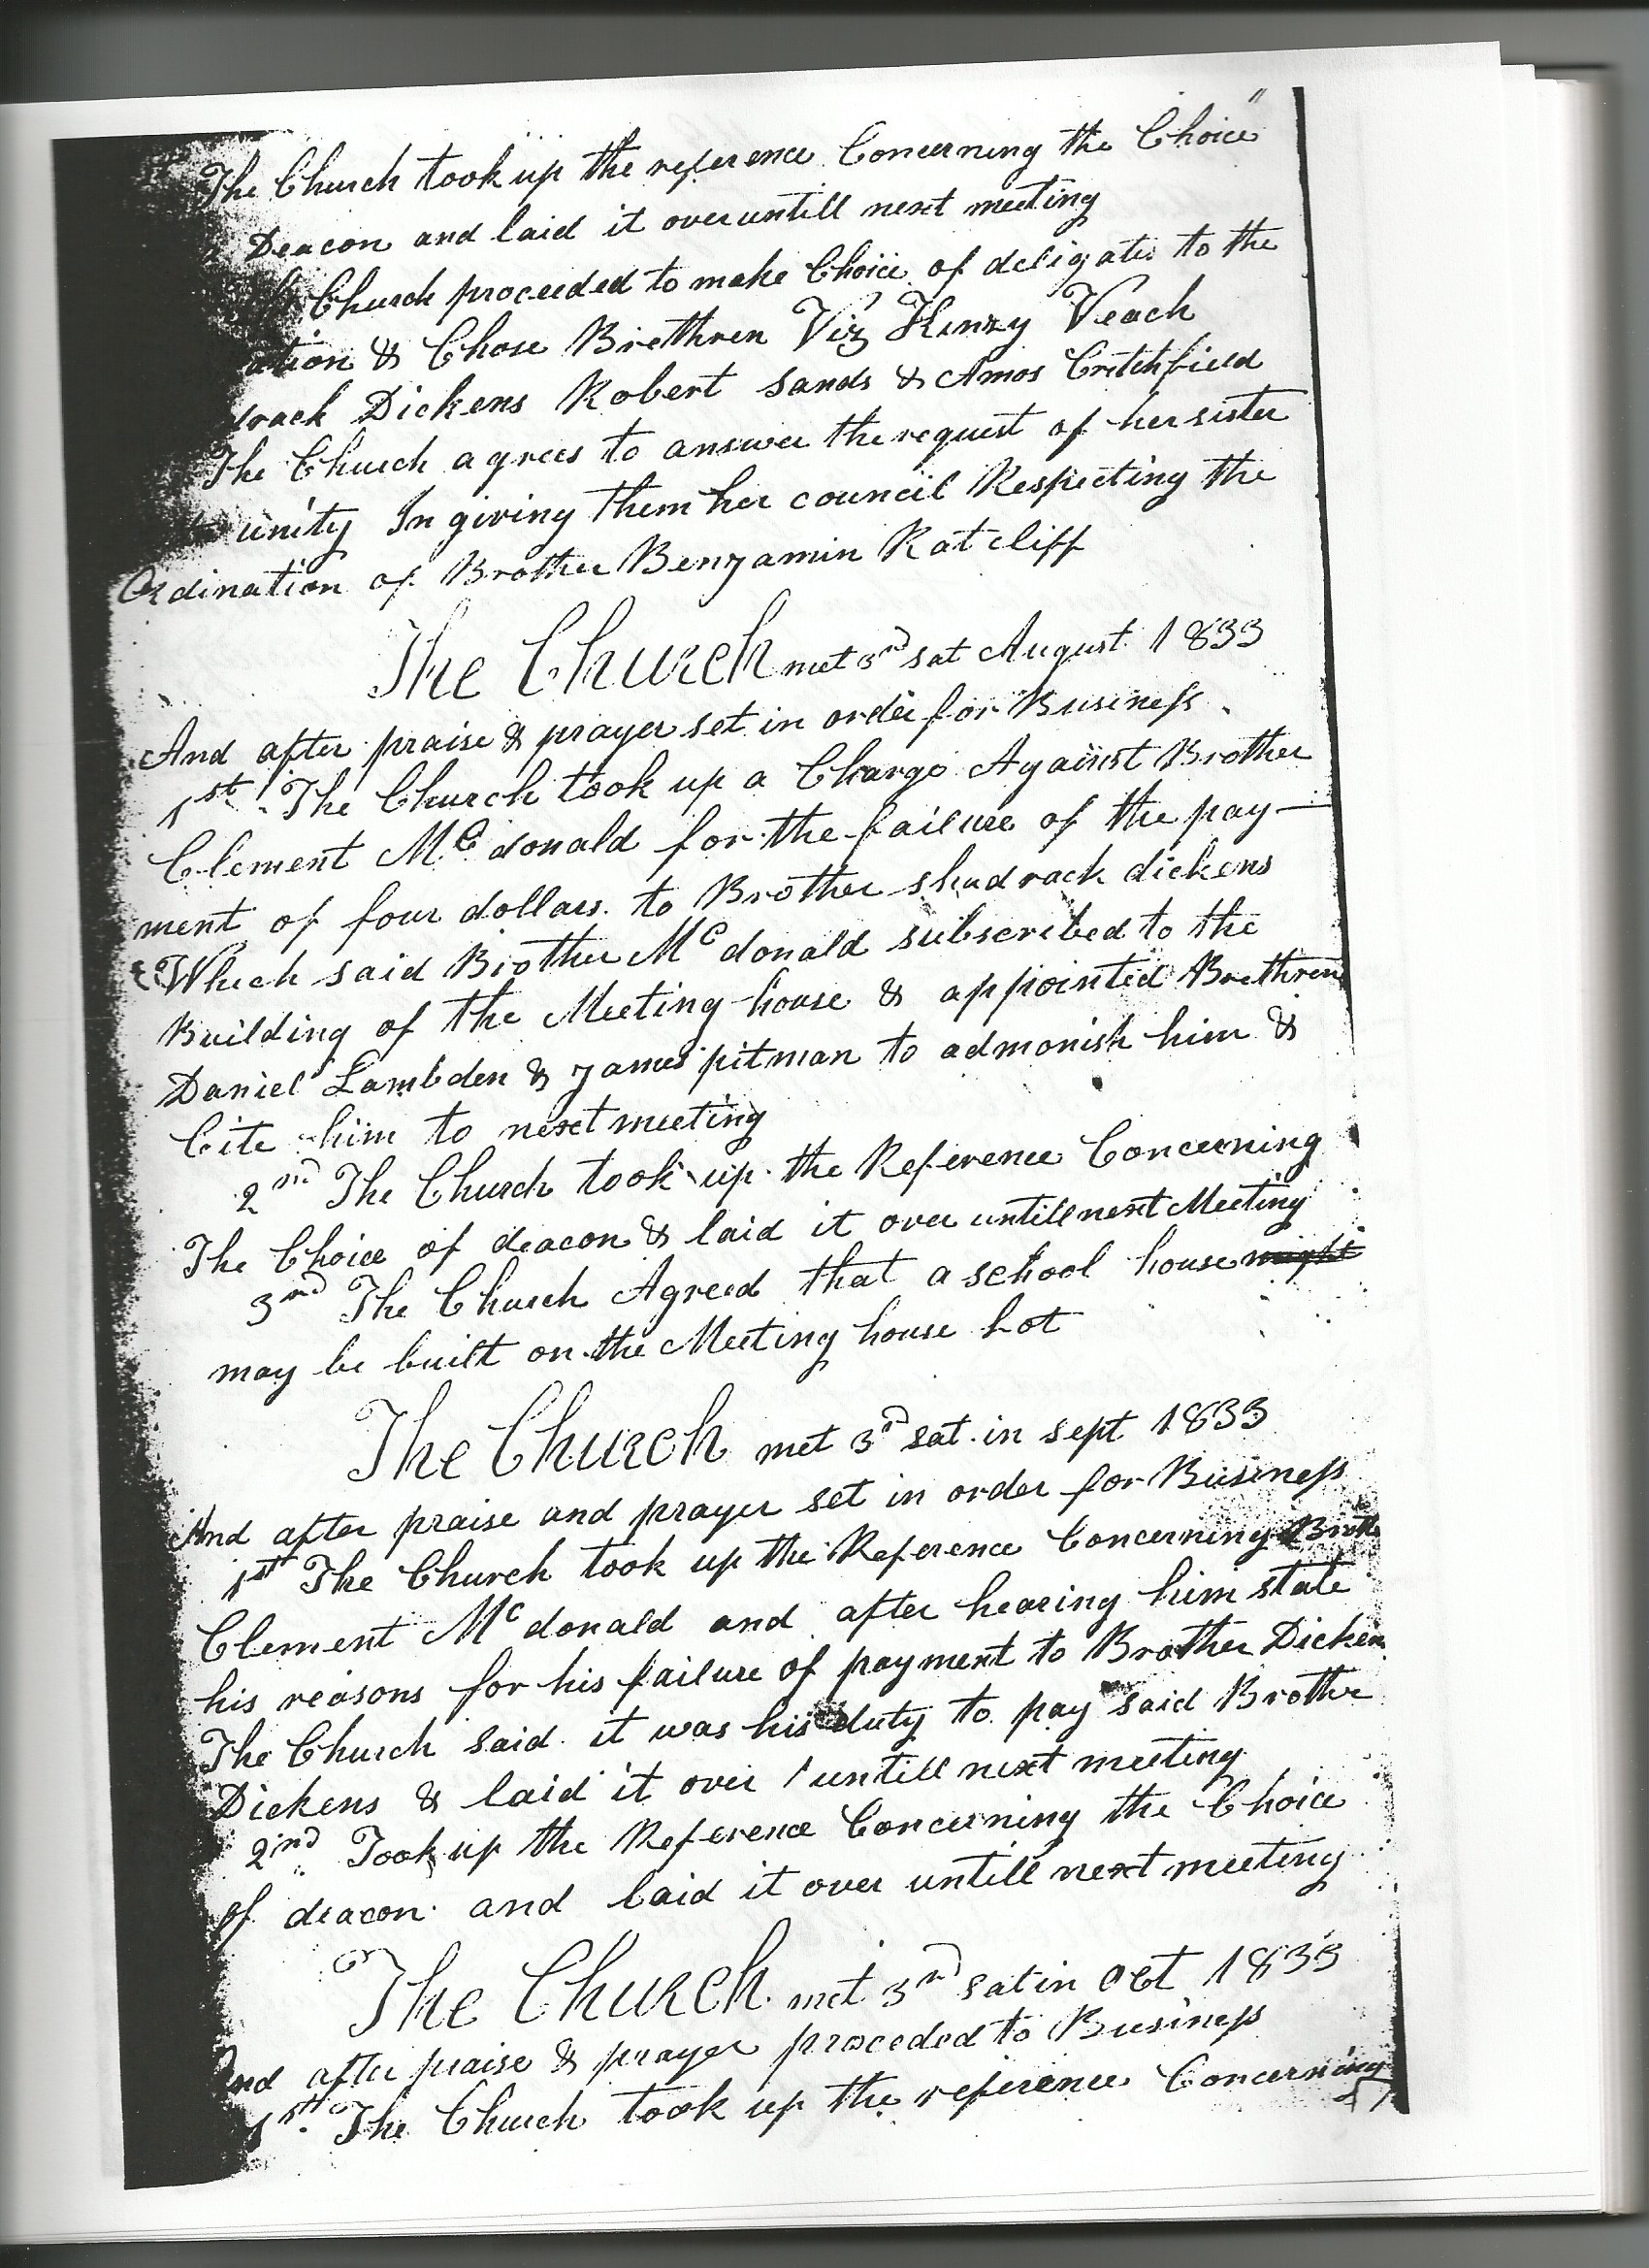 The Church took up the reference Concerning the Choice"
Deacon and laid it over untill next meeting
Church proceeded to make Choice of deligates to the
ation & Chose Brethren Viz Kinzy Veach
drack Dickens Robert Sands & Amos Critchfield
The Church agrees to answer the request of her sister
unity In giving them her council Respecting the
Ordination of Brother Benjamin Ratcliff
The Church met 3rd sat August 1833
And after praise & prayer set in order for Business
1st The Church took up a Charge Against Brother
Clement Mc donald for the failure of the pay—
ment of four dollars to Brother shadrack dickens
Which said Brother Mc donald subscribed to the
Building of the Meeting house & appointed Brethren
Daniel Lambden & James pitman to admonish him &
Cite him to next meeting
2nd The Church took up the Reference Concerning
The Choice of deacon & laid it over untill next Meeting
3rd The Church Agreed that a school house might
may be built on the Meeting house Lot
The Church met 3d sat in sept 1833
And after praise and prayer set in order for Business
1st The Church took up the Reference Concerning Broth
Clement Mc donald and after hearing him state
his reasons for his failure of payment to Brother Dicken
The Church said it was his duty to pay said Brother
Dickens & laid it over untill next meeting
2nd Took up the Reference Concerning the Choice
of deacon and laid it over untill next meeting
The Church met 3rd sat in Oct 1833
And after praise & prayer proceded to Business
1st The Church took up the reference Concerning